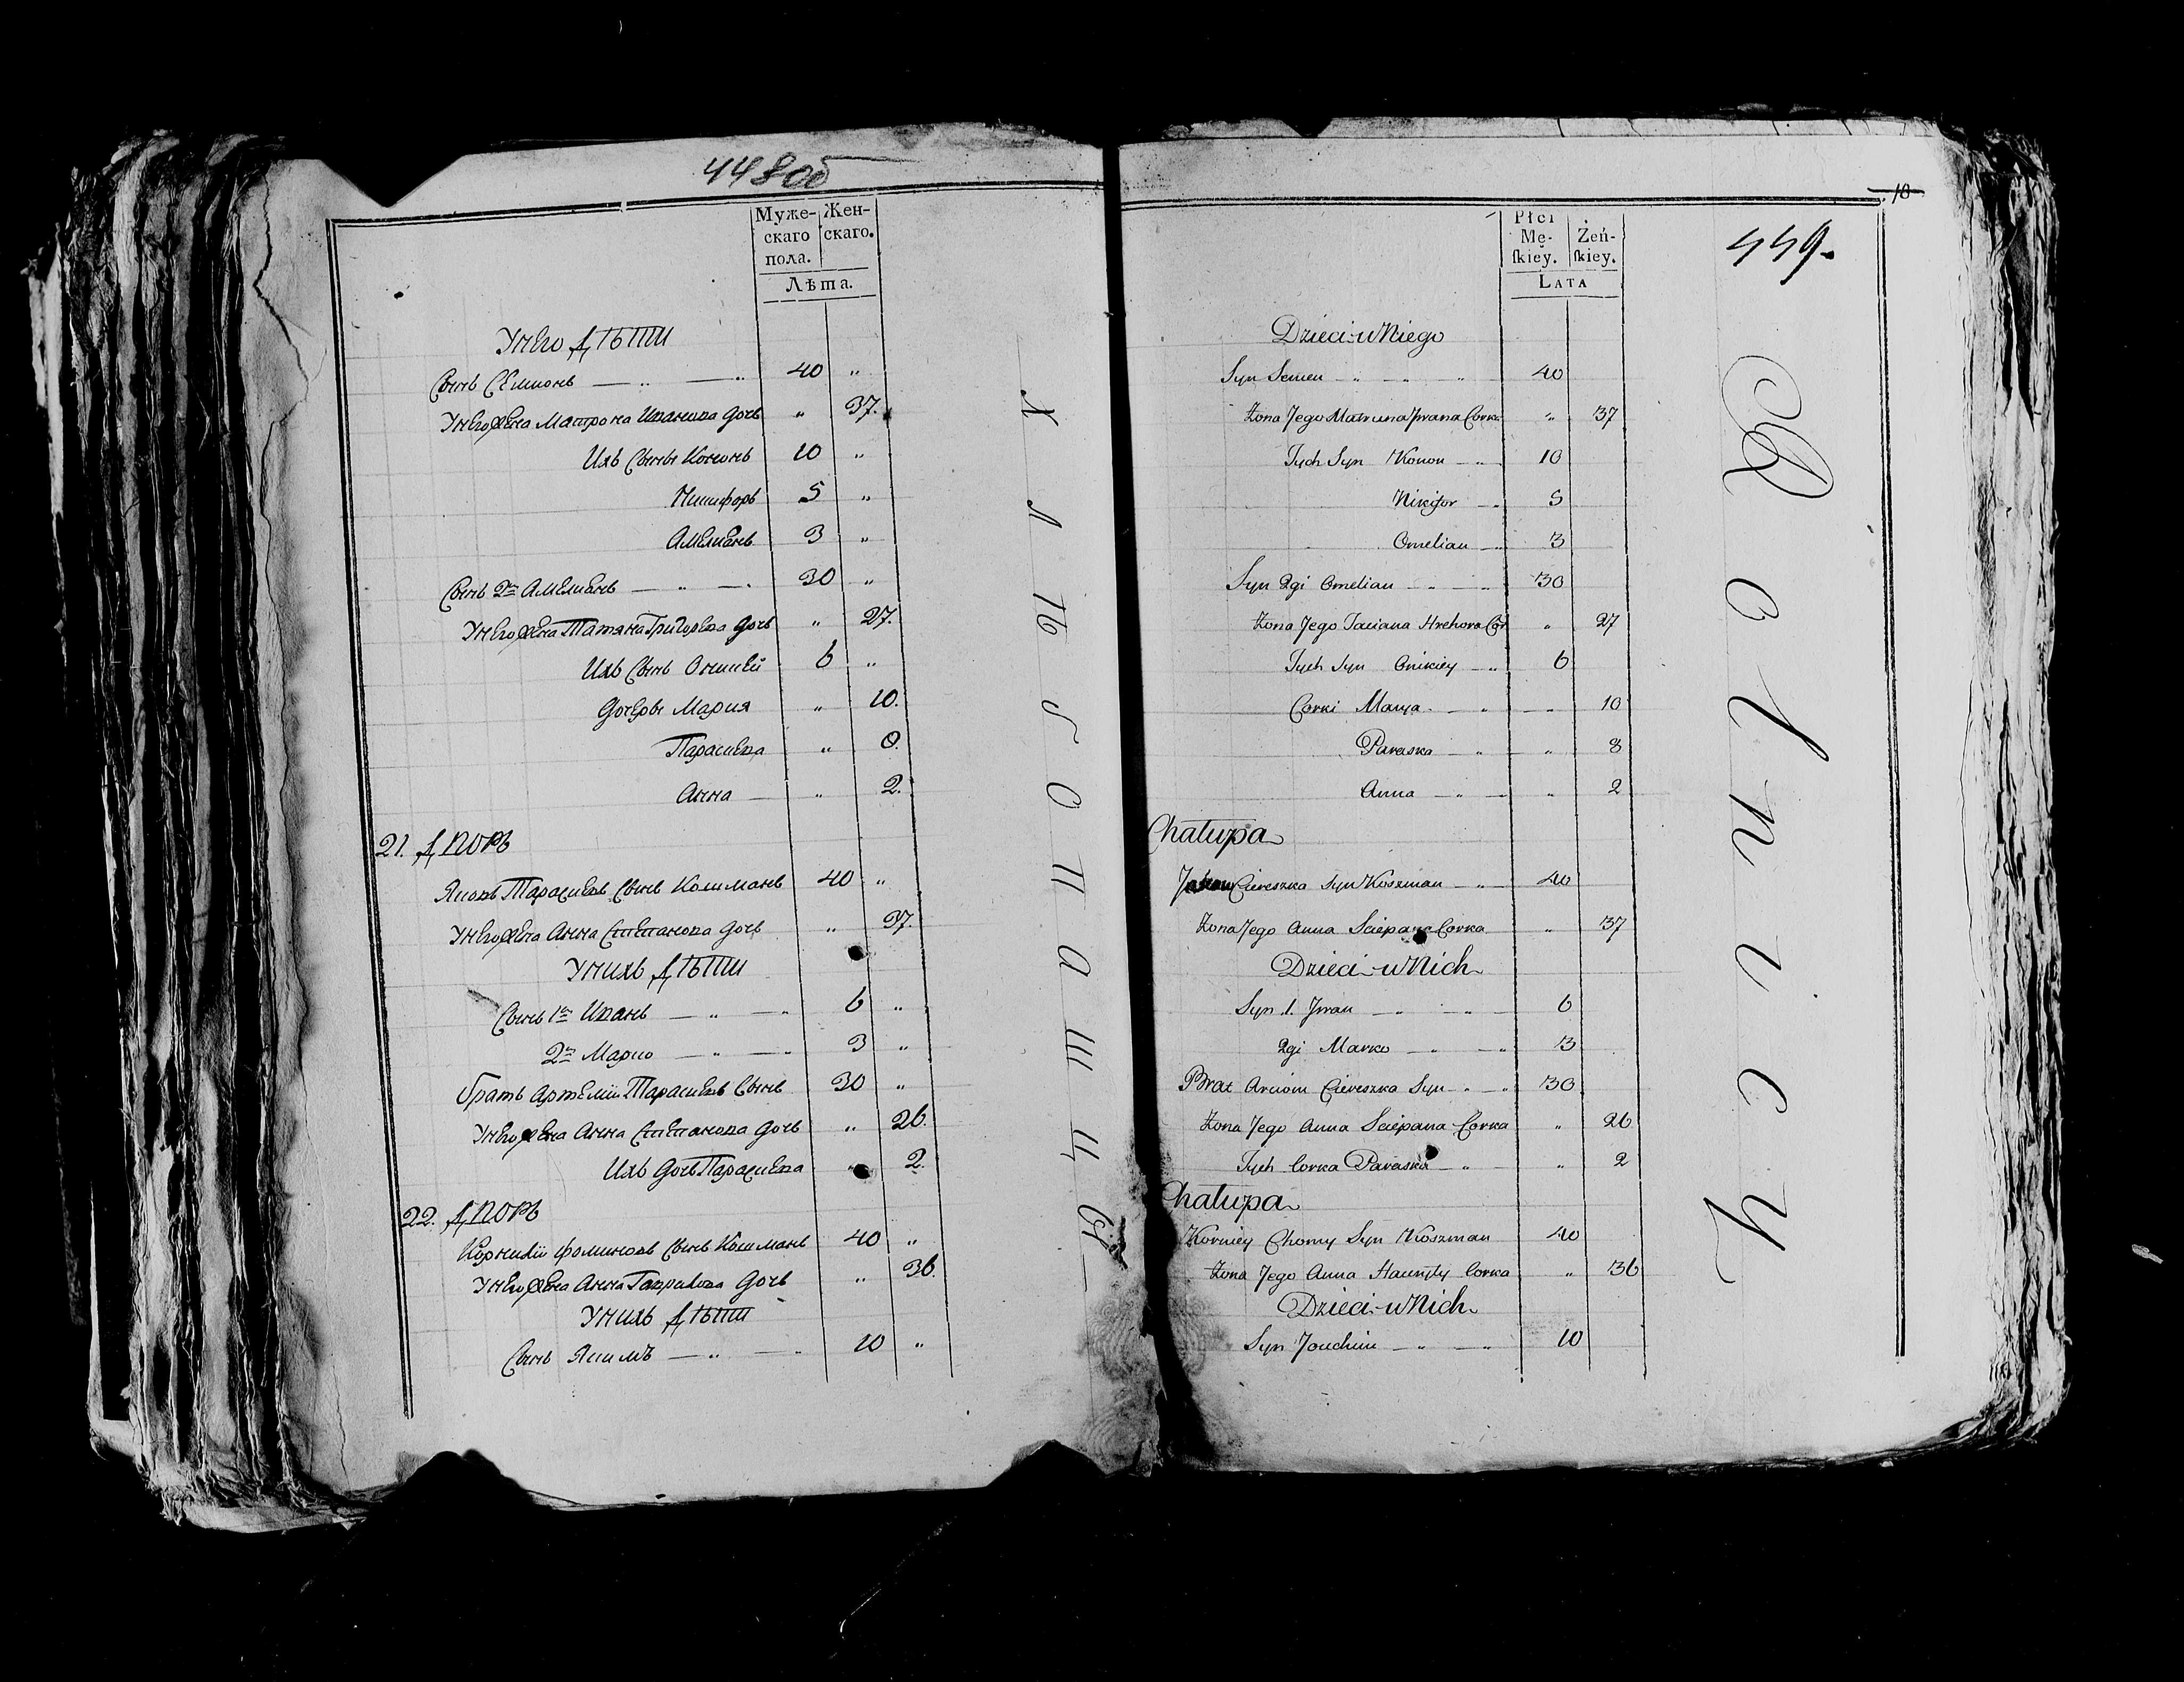 448об
Муже-
скаго
пола.
Жен-
скаго.
Лѣта.
У него Дѣти
Сынъ Семионъ — „ — „ 40 „
У него жена Матрона Иванова дочь „ 37.
Ихъ Сыны Кононъ 10 „
Никифоръ 5 „
Амелианъ 3 „
Сынъ 2й Амелианъ — „ — „ 30 „
У него жена Татяна Григорева дочь „ 27.
Ихъ Сынъ Оникей 6 „
Дочеры Мария „ 10.
Парасква „ 8.
Анна — „ 2.
21. Дворъ
Яковъ Тарасиевъ Сынъ Кошманъ 40 „
У него жена Анна Степанова дочь „ 37.
У нихъ Дѣти
Сынъ 1й Иванъ — „ — „ 6 „
2й Марко — „ — „ 3 „
братъ Артемий Тарасиевъ Сынъ 30 „
У него жена Анна Степанова дочь „ 26.
Ихъ дочь Парасква „ 2.
22. Дворъ
Корнилий Фоминовъ Сынъ Кошманъ 40 „
У него жена Анна Гаврилова дочь „ 36.
У нихъ Дѣти
Сынъ Якимъ — „ — „ 10 „
Хлѣбопашцы
10
449.
Płci
Mę-
ſkiey.
Żeń-
ſkiey.
LATA
Dzieci u Niego
Syn Semen „ „ „ 40
Żona Jego Matruna Jwana Corka „ 37
Tych Syn Konon — „ 10
Nikifor — 5
Omelian — 3
Syn 2gi Omelian — „ 30
Żona Jego Taciana Hrehora Cor „ 27
Tych Syn Onikiey — „ 6
Corki Marya — „ — 10
Paraska — „ „ 8
Anna — „ — „ 2
Chalupa
Jakow Ciereszka Syn Koszman — „ 40
Żona Jego Anna Sciepana Corka „ 37
Dzieci u Nich
Syn 1. Jwan — „ — „ 6
2gi Marko — „ — „ 3
Brat Arciom Ciereszka Syn „ „ 30
Żona Jego Anna Sciepana Corka „ 26
Tych Corka Paraska — „ „ 2
Chalupa
Korniey Chomy Syn Koszman 40
Żona Jego Anna Corka „ 36
Dzieci u Nich
Syn Jouchim — „ — „ 10
Rolnicy